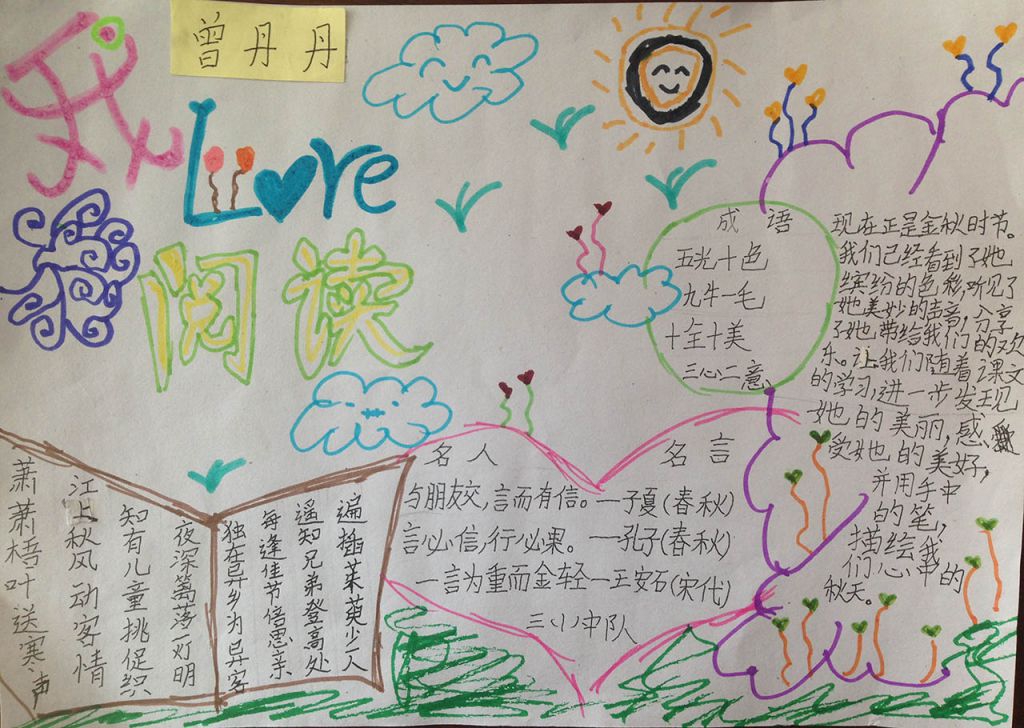 曾丹丹
我
Love
阅读
成语
五光十色
九牛一毛
十全十美
三心二意
现在正是金秋时节。
我们已经看到了她
缤纷的色彩,听见了
她美妙的声音,分享
了她带给我们的欢
乐。让我们随着课文
的学习,进一步发现
她的美丽,感
受她的美好,
并用手中
的笔,
描绘我
们心中的
秋天。
名人名言
与朋友交,言而有信。—子夏(春秋)
言必信,行必果。—孔子(春秋)
一言为重而金轻—王安石(宋代)
三(1)中队
萧萧梧叶送寒声
江上秋风动客情
知有儿童挑促织
夜深篱落一灯明
独在异乡为异客
每逢佳节倍思亲
遥知兄弟登高处
遍插茱萸少一人